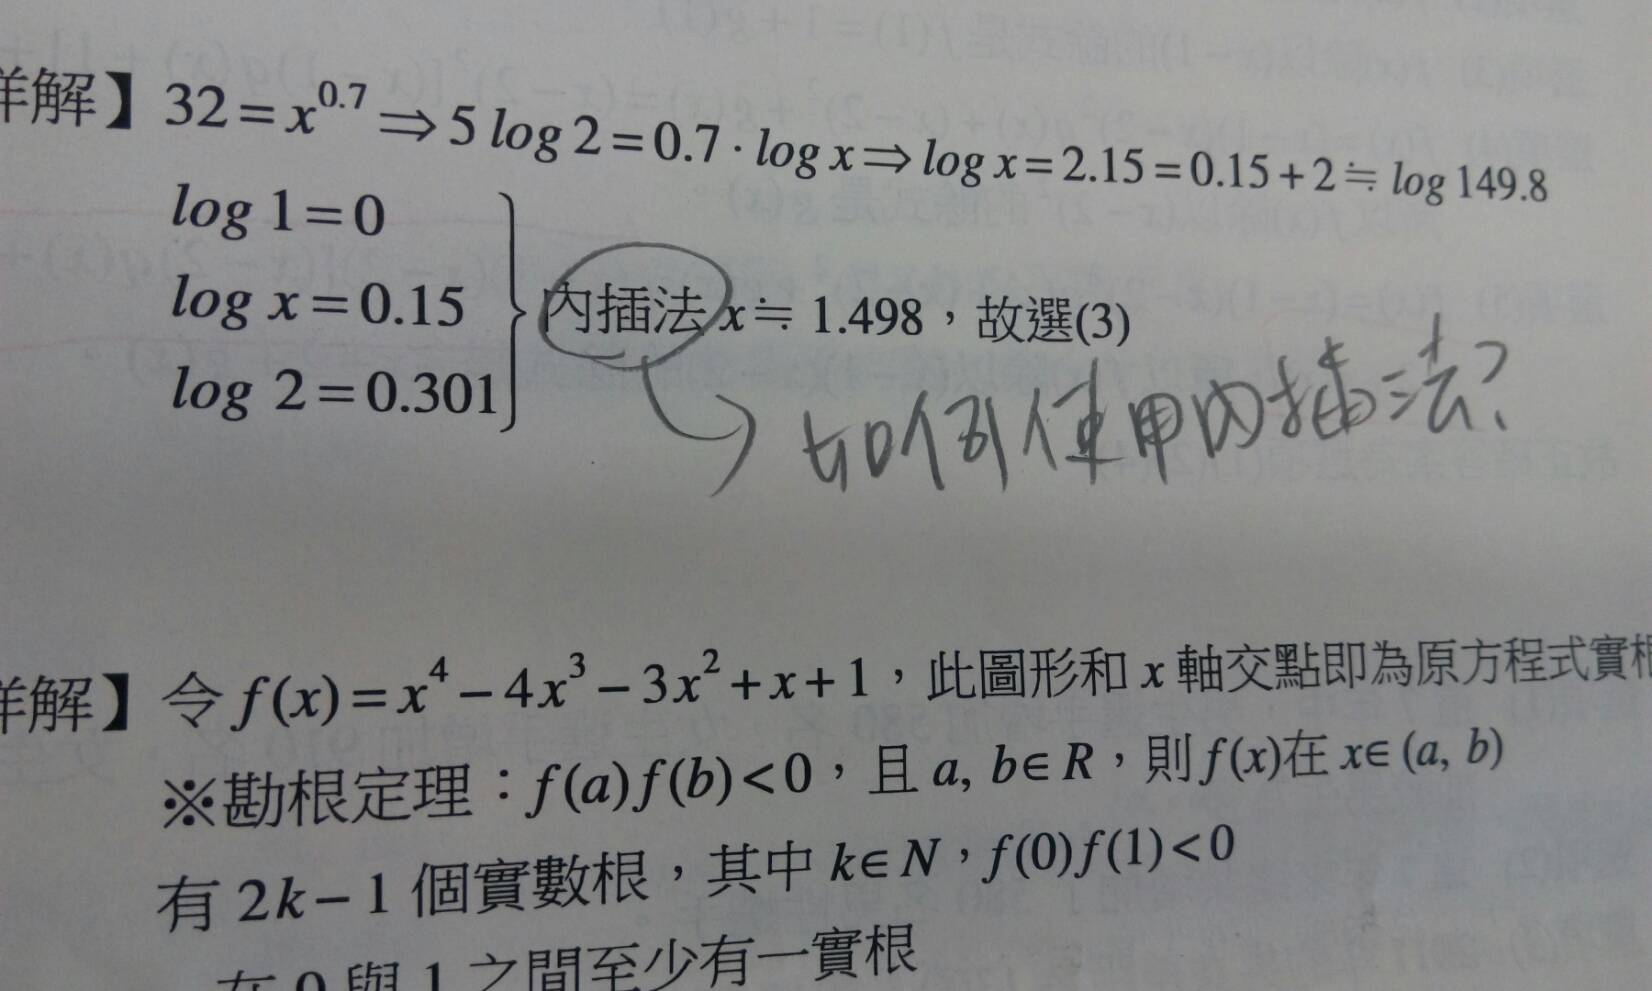 詳解】32=x^0.7⇒5 log 2=0.7·log x⇒log x=2.15=0.15+2≒log 149.8
log 1=0
log x=0.15
log 2=0.301
內插法 x≒1.498,故選(3)
如何使用內插法?
詳解】令 f(x)=x^4-4x^3-3x^2+x+1,此圖形和 x 軸交點即為原方程式實根
※勘根定理:f(a)f(b)<0,且 a, b∈R,則f(x)在 x∈(a, b)
有 2k-1 個實數根,其中 k∈N,f(0)f(1)<0
在 0 與 1 之間至少有一實根